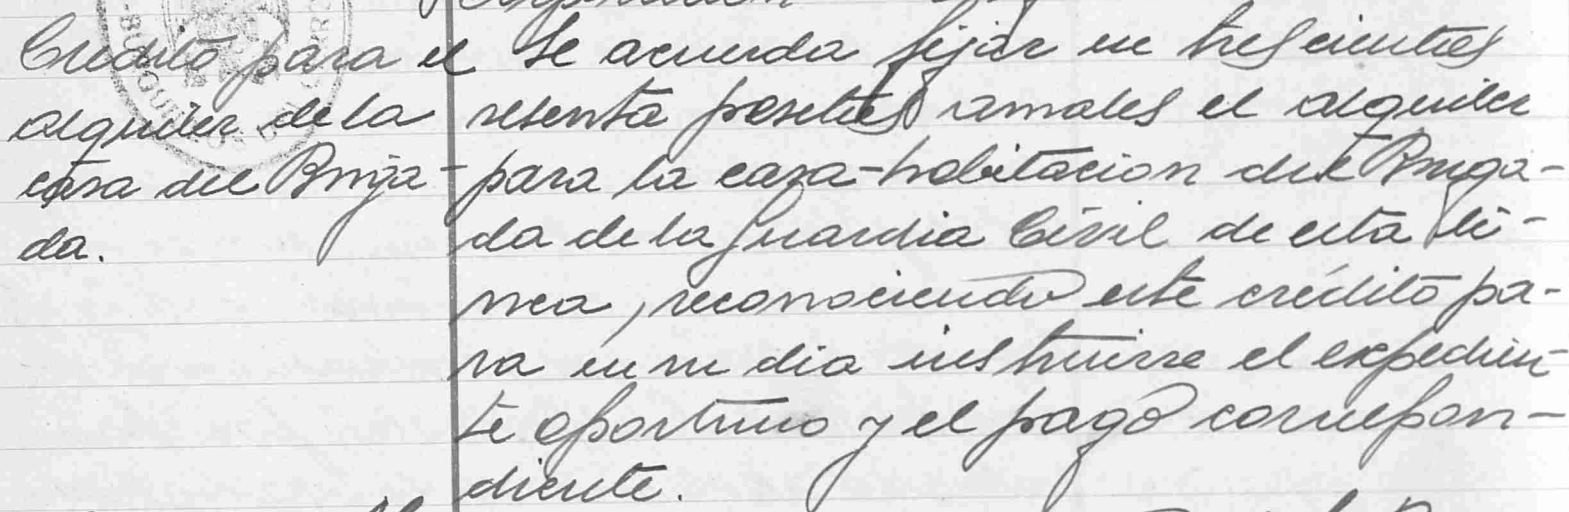 Crédito para el
alquiler de la
casa del Briga-
da.
Se acuerda fijar en trescientas
setenta pesetas anuales el alquiler
para la casa-habitacion del Briga-
da de la Guardia Civil de esta li-
nea, reconociendo este crédito pa-
ra en su dia instruirse el expedien-
te oportuno y el pago correspon-
diente.